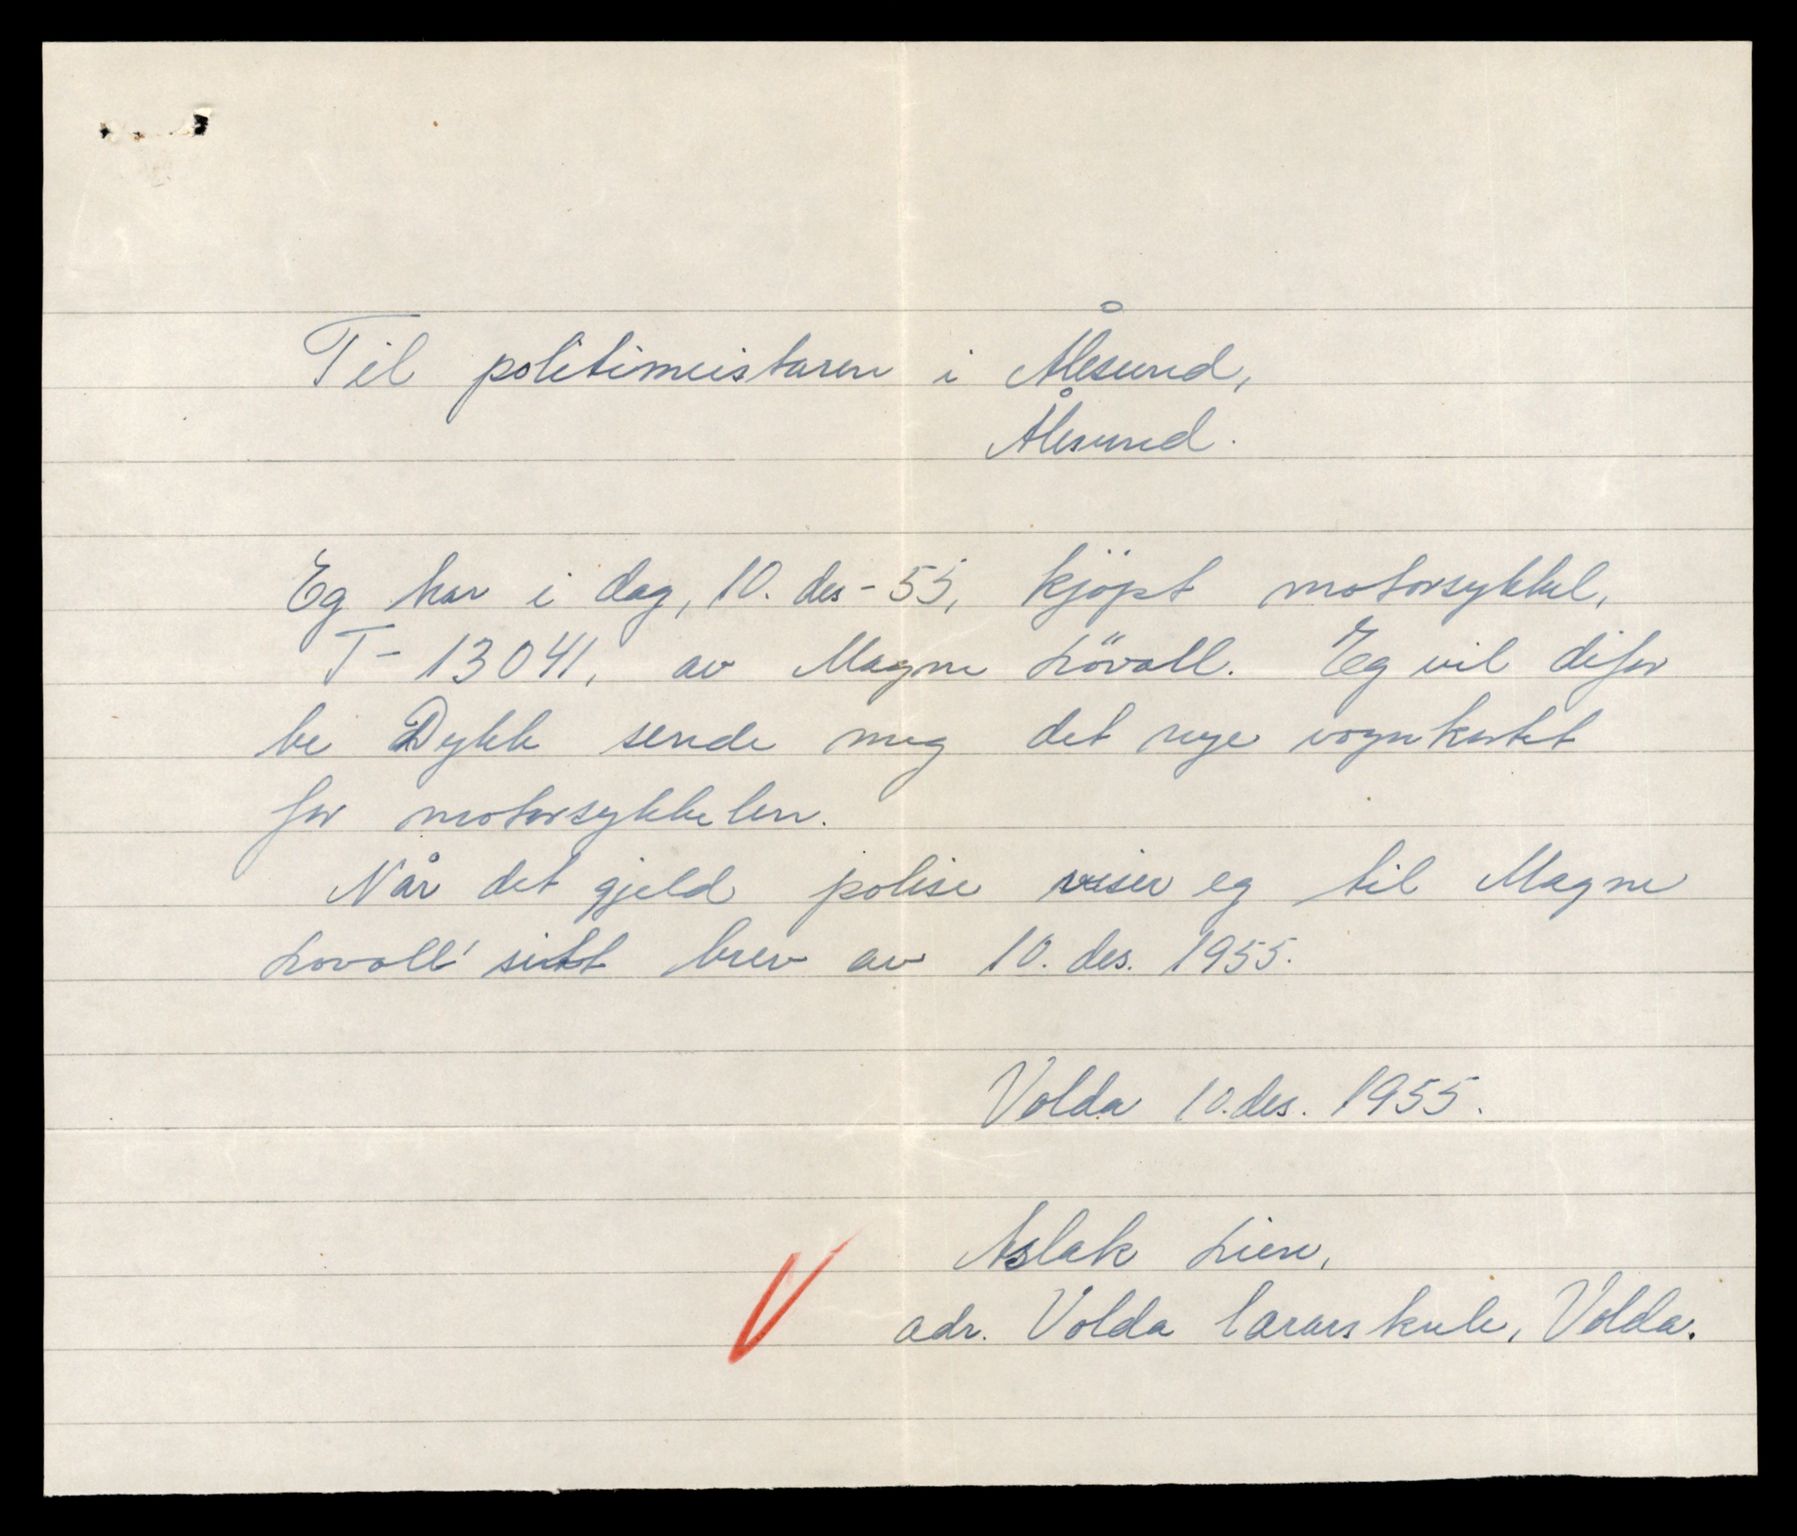 Til politimeistaren i Ålesund,
Ålesund.
Eg har i dag, 10. des - 55, kjöpt motorsykkel,
T - 13041, av Magne Lövoll. Eg vil difor
be Dykk sende meg det nye vognkortet
for motorsykkelen.
Når det gjeld polise viser eg til Magne
Lovoll' sitt brev av 10. des. 1955.
Volda 10. des. 1955.
Aslak Lien,
adr. Volda lærarskule, Volda.